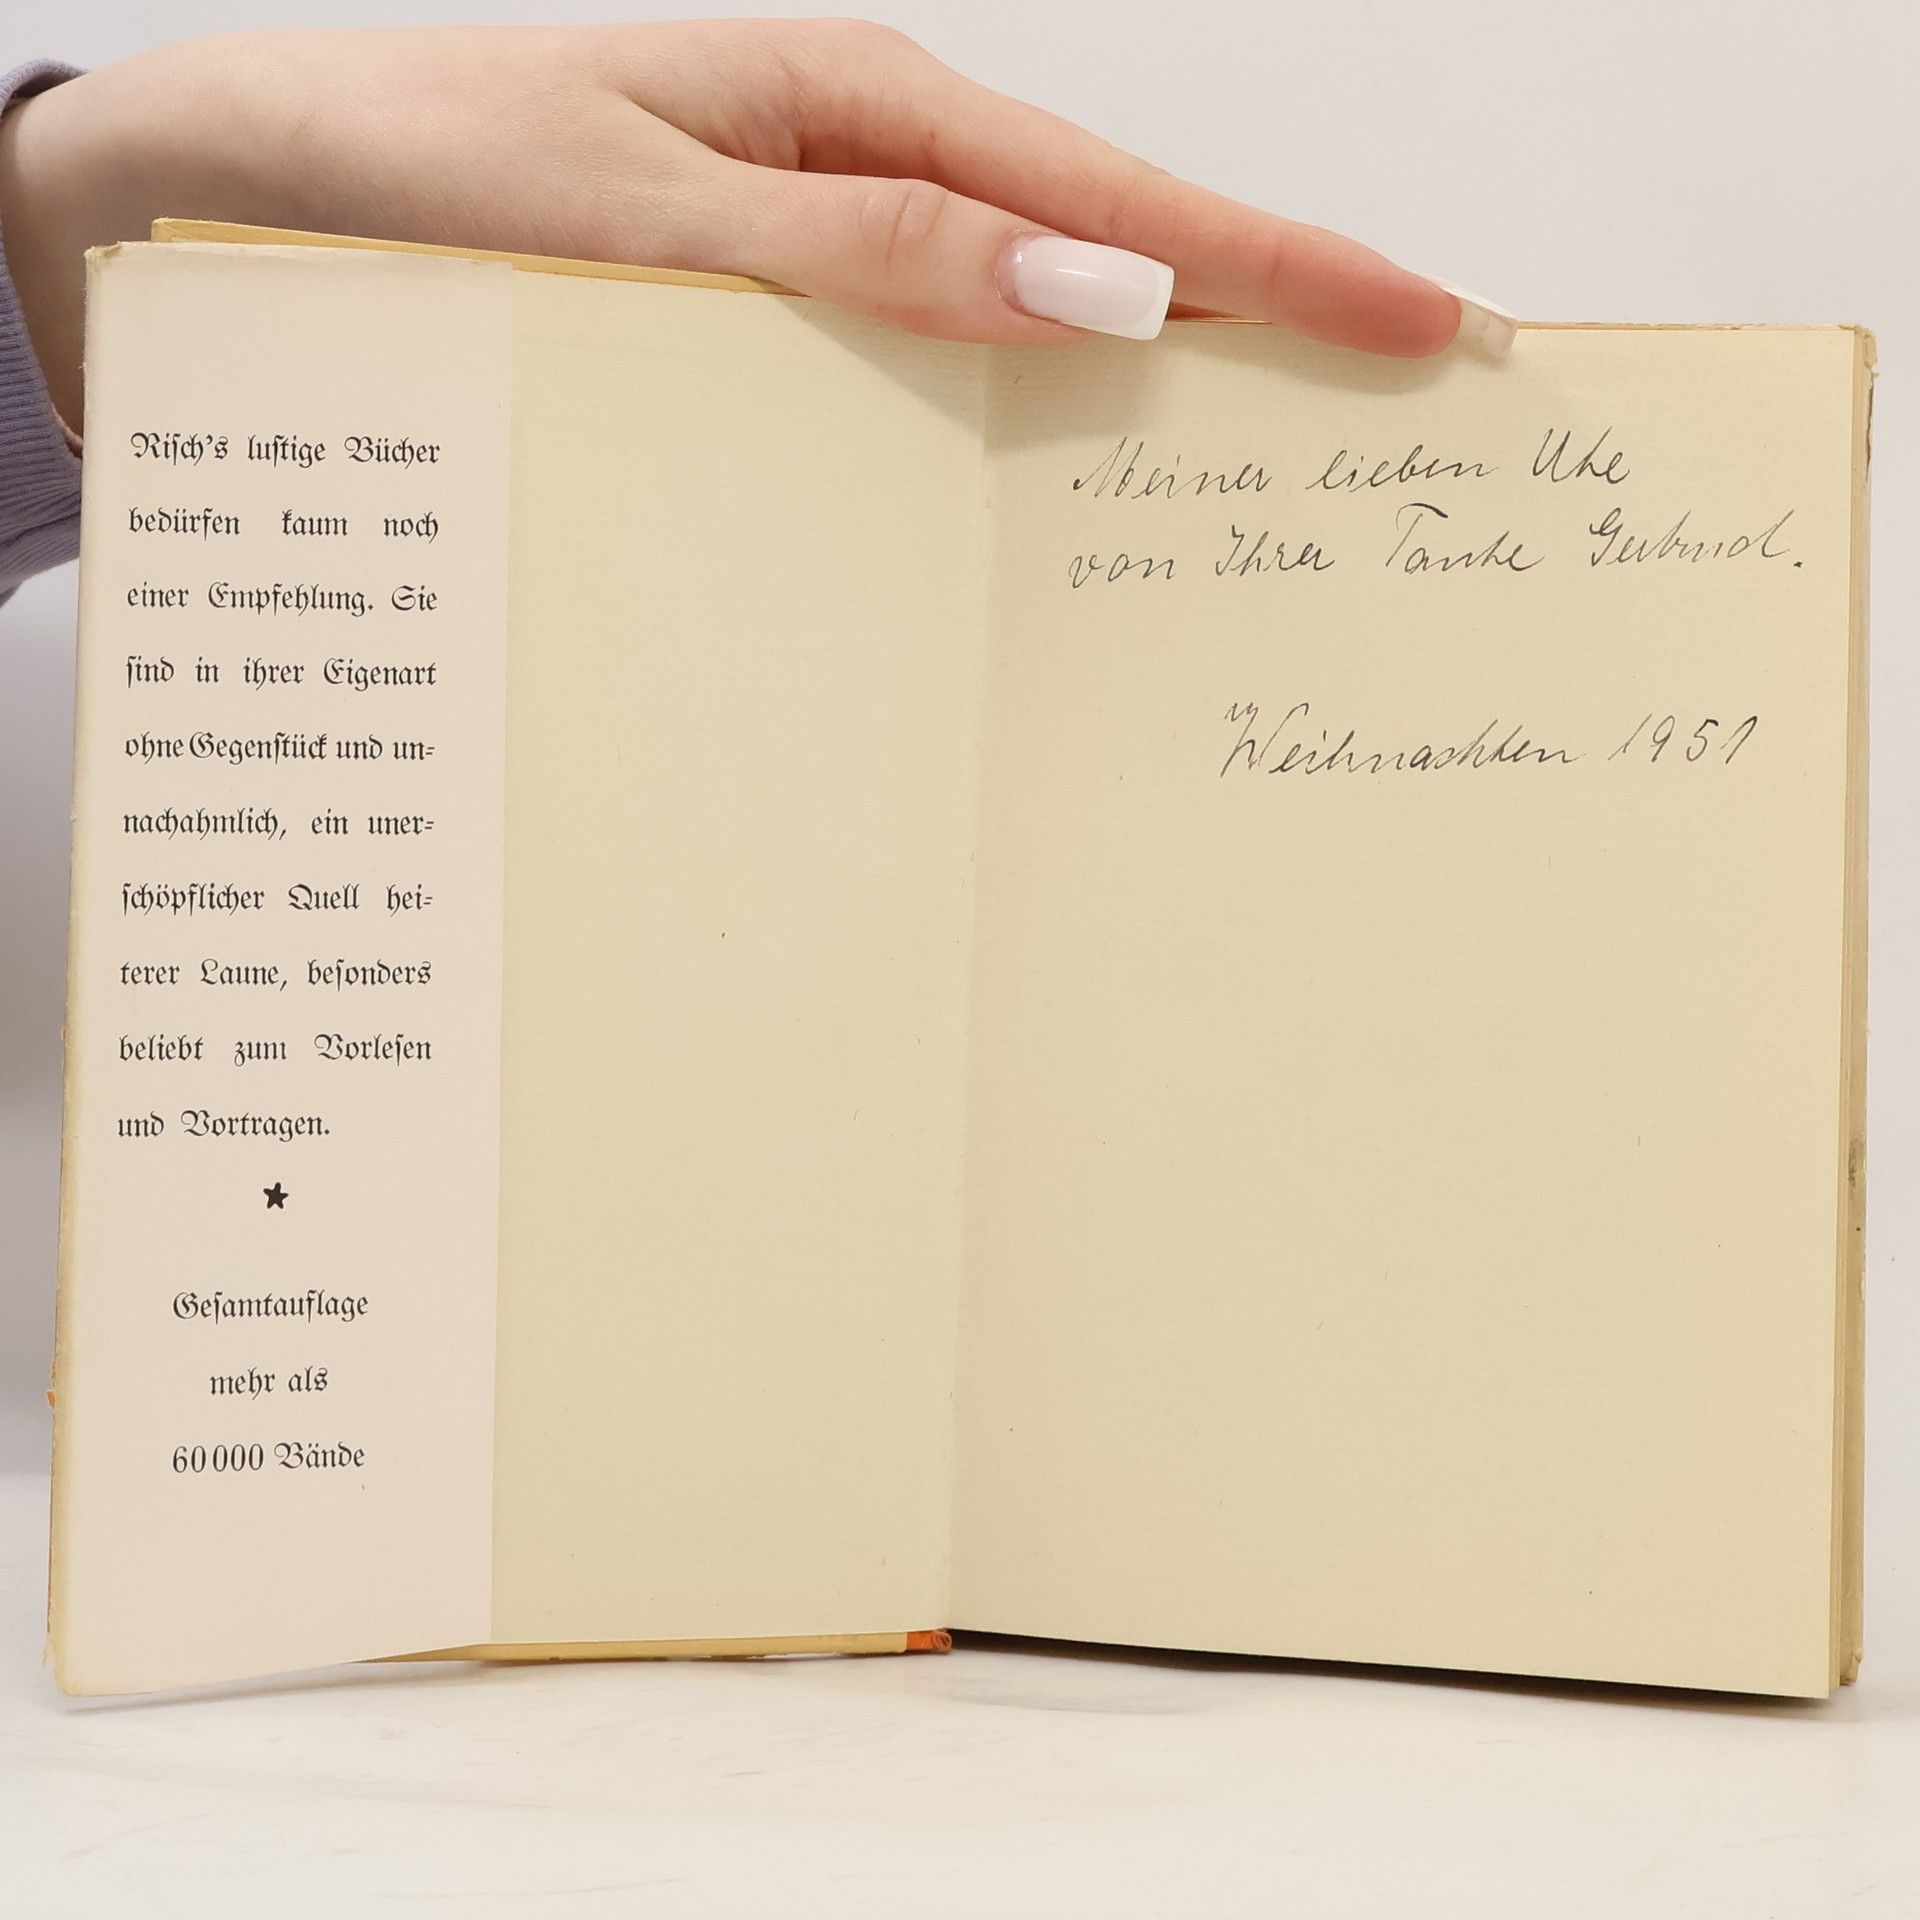 Risch's lustige Bücher
bedürfen kaum noch
einer Empfehlung. Sie
sind in ihrer Eigenart
ohne Gegenstück und un-
nachahmlich, ein uner-
schöpflicher Quell hei-
terer Laune, besonders
beliebt zum Vorlesen
und Vortragen.
★
Gesamtauflage
mehr als
60000 Bände
Meiner lieben Ute
von Ihrer Tante Gertrud.
Weihnachten 1951